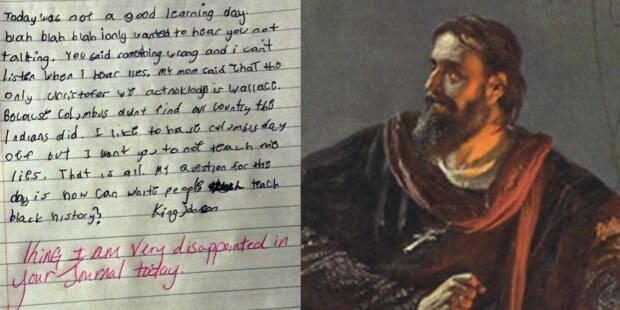 Today was not a good learning day.
blah blah blah i only wanted to hear you not
talking. You said something wrong and i can't
listen when I hear lies. My mom said that the
only christofer we acknoledge is wallace.
Because Columbus didnt find our country the
Indians did. I like to have columbus day
off but I want you to not teach me
lies. That is all. My question for the
day is how can white people teach
black history?
King Johnson
King I am very disappointed in
your Journal today.